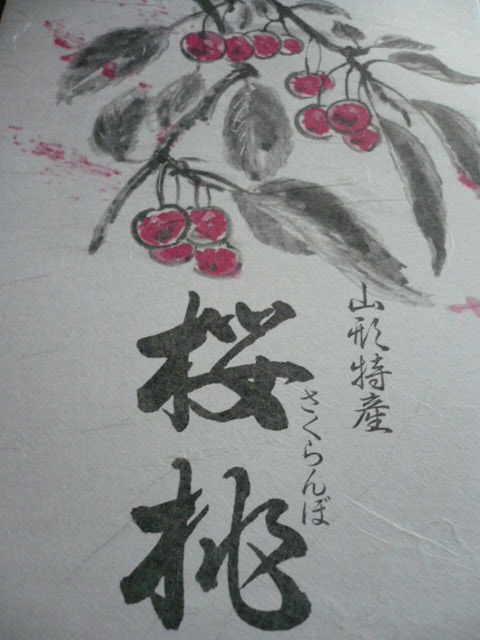 山形特産
桜桃
さくらんぼ